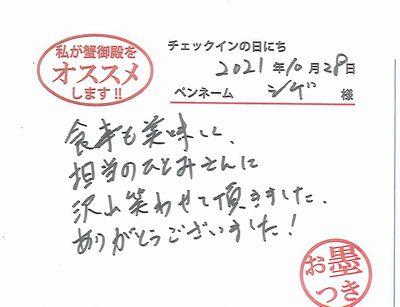 私が蟹御殿を
オススメ
します!!
チェックインの日にち
2021年10月28日
ペンネーム シゲ 様
食事も美味しく、
担当のひとみさんに
沢山笑わせて頂きました.
ありがとうございました!
お墨
つき